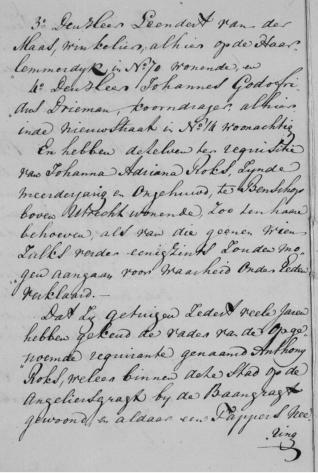 3e Den Heer Leendert van der
Maas, winkelier, alhier op de Haar-
lemmerdyk in No 70 wonende, en
4e Den Heer Johannes Godefri-
dus Drieman, koorndrager, alhier
in de Nieuwstraat in No 14 woonachtig
En hebben dezelven ter requisitie
van Johanna Adriana Roks, zynde
meerderjarig en ongehuwd, te Benschop
boven Utrecht wonende, zoo ten haare
behoeven, als van die geenen wien
zulks verder eenigzints zoude mo-
gen aangaan voor waarheid onder Eede
verklaard. —
Dat zy getuigen zedert veele jaren
hebben gekend de vader van de opge-
noemde requirante genaamd Anthony
Roks, welke binnen deze Stad op de
Angeliersgragt by de Baangragt
gewoond, en aldaar een Tappers Nee-
ring